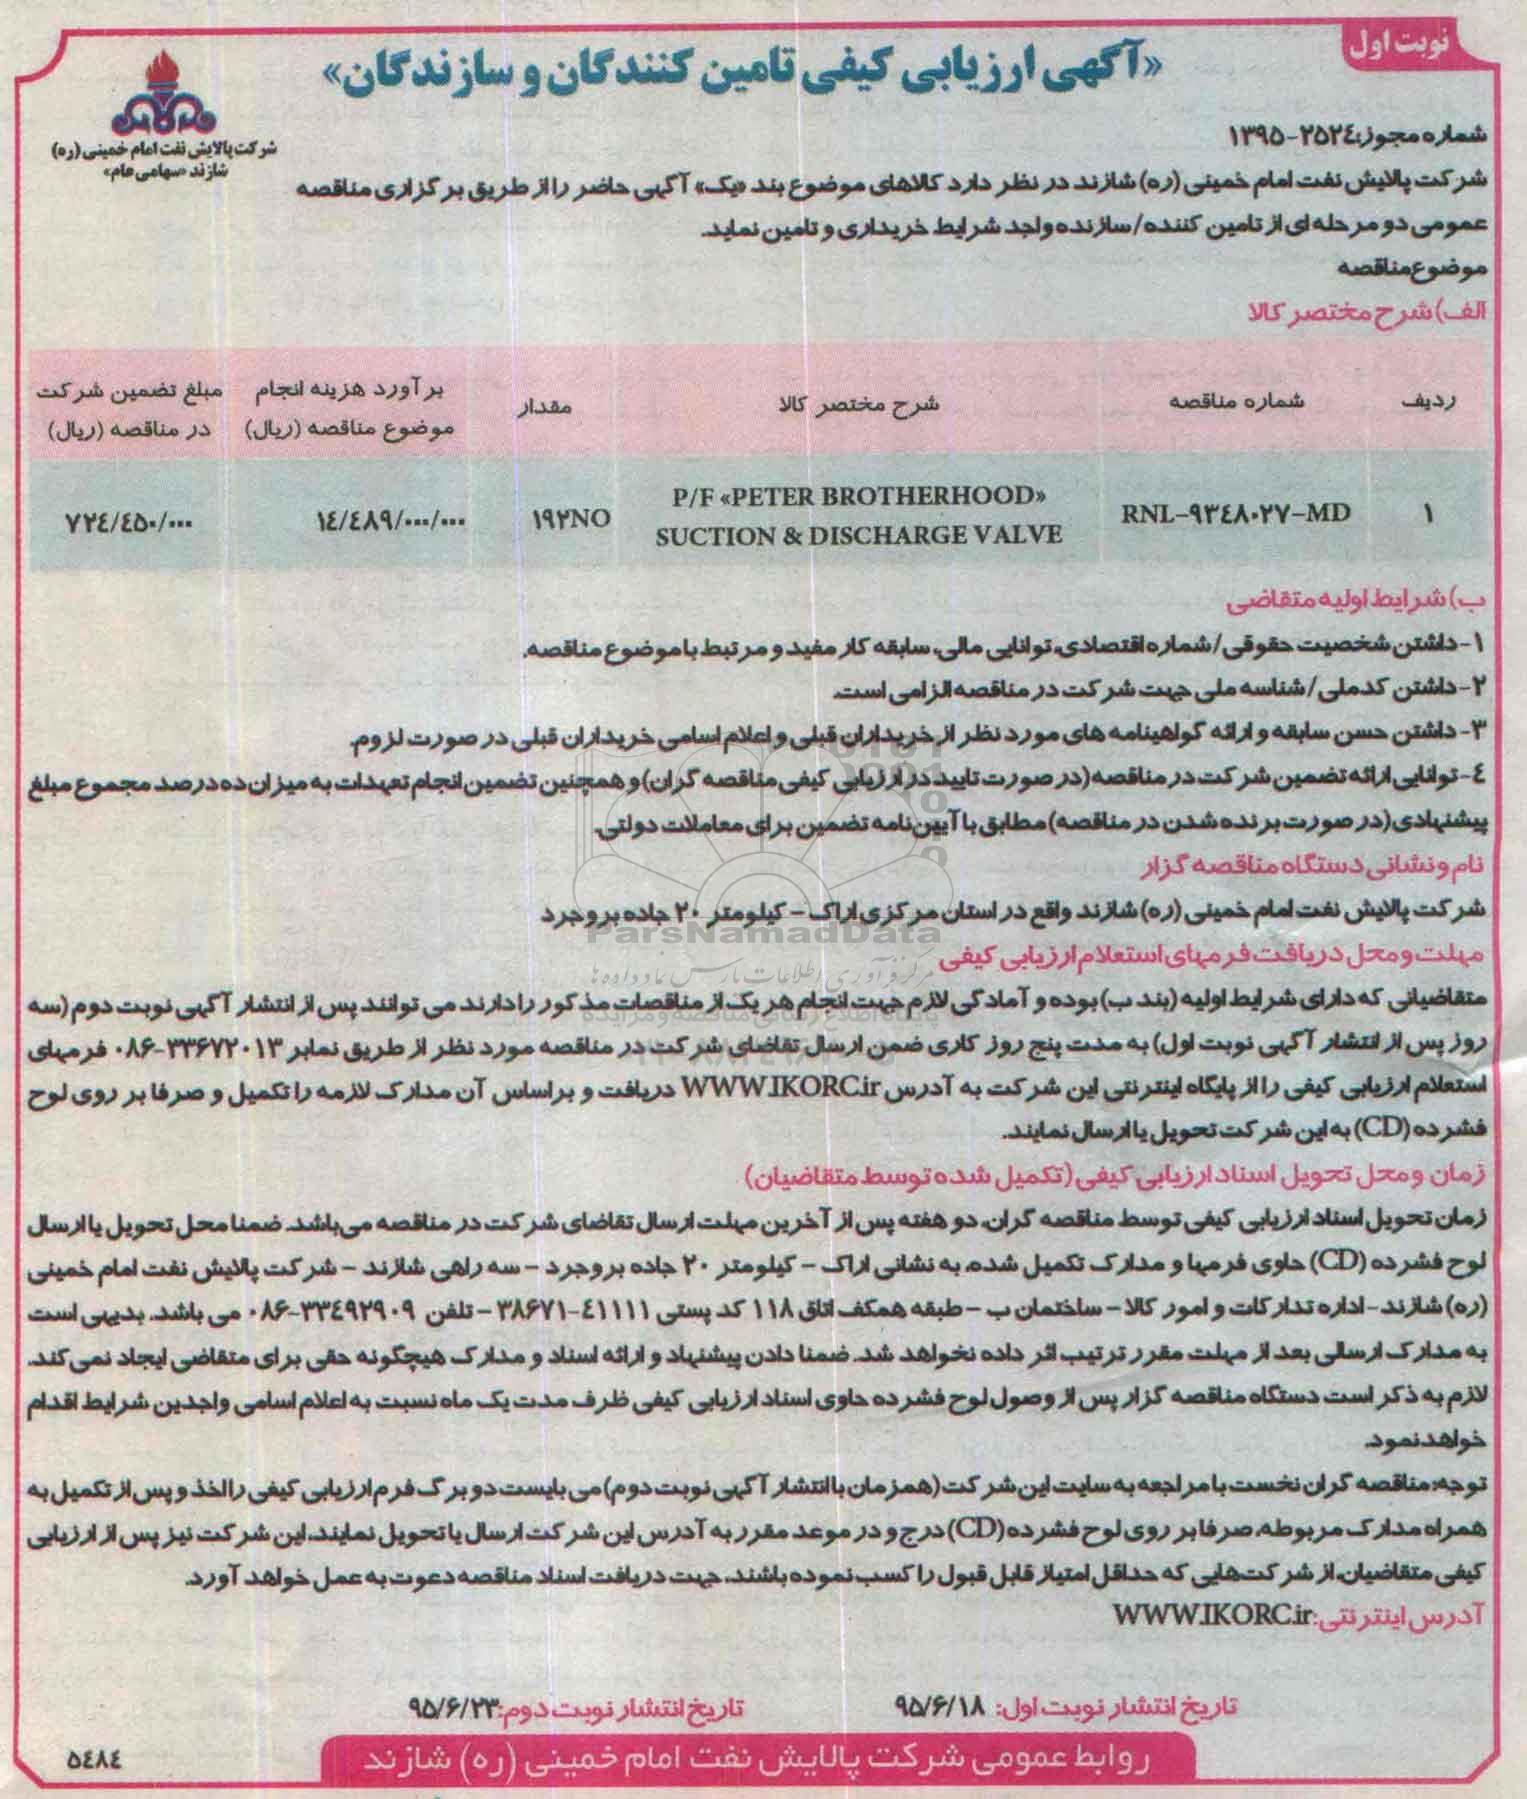 نوبت اول
«آگهی ارزیابی کیفی تامین کنندگان و سازندگان»
شرکت پالایش نفت امام خمینی (ره)
شازند «سهامی عام»
شماره مجوز: ۲۵۲۴-۱۳۹۵
شرکت پالایش نفت امام خمینی (ره) شازند در نظر دارد کالاهای موضوع بند «یک» آگهی حاضر را از طریق برگزاری مناقصه
عمومی دو مرحله ای از تامین کننده/ سازنده واجد شرایط خریداری و تامین نماید.
موضوع مناقصه
الف) شرح مختصر کالا
ردیف	شماره مناقصه	شرح مختصر کالا	مقدار	برآورد هزینه انجام موضوع مناقصه (ریال)	مبلغ تضمین شرکت در مناقصه (ریال)
۱	RNL-۹۳۴۸۰۲۷-MD	P/F «PETER BROTHERHOOD» SUCTION & DISCHARGE VALVE	۱۹۲NO	۱۴/۴۸۹/۰۰۰/۰۰۰	۷۲۴/۴۵۰/۰۰۰
ب) شرایط اولیه متقاضی
۱- داشتن شخصیت حقوقی/ شماره اقتصادی، توانایی مالی، سابقه کار مفید و مرتبط با موضوع مناقصه.
۲- داشتن کدملی/ شناسه ملی جهت شرکت در مناقصه الزامی است.
۳- داشتن حسن سابقه و ارائه گواهینامه های مورد نظر از خریداران قبلی و اعلام اسامی خریداران قبلی در صورت لزوم.
۴- توانایی ارائه تضمین شرکت در مناقصه (در صورت تایید در ارزیابی کیفی مناقصه گران) و همچنین تضمین انجام تعهدات به میزان ده درصد مجموع مبلغ
پیشنهادی (در صورت برنده شدن در مناقصه) مطابق با آیین‌نامه تضمین برای معاملات دولتی.
نام و نشانی دستگاه مناقصه گزار
شرکت پالایش نفت امام خمینی (ره) شازند واقع در استان مرکزی اراک - کیلومتر ۲۰ جاده بروجرد
ParsNamadData
مهلت و محل دریافت فرمهای استعلام ارزیابی کیفی
مرکز فرآوری اطلاعات پارس نماد داده ها
متقاضیانی که دارای شرایط اولیه (بند ب) بوده و آمادگی لازم جهت انجام هر یک از مناقصات مذکور را دارند می توانند پس از انتشار آگهی نوبت دوم (سه
روز پس از انتشار آگهی نوبت اول) به مدت پنج روز کاری ضمن ارسال تقاضای شرکت در مناقصه مورد نظر از طریق نمابر ۳۳۶۷۲۰۱۳-۰۸۶ فرمهای
استعلام ارزیابی کیفی را از پایگاه اینترنتی این شرکت به آدرس WWW.IKORC.ir دریافت و براساس آن مدارک لازمه را تکمیل و صرفا بر روی لوح
فشرده (CD) به این شرکت تحویل یا ارسال نمایند.
زمان و محل تحویل اسناد ارزیابی کیفی (تکمیل شده توسط متقاضیان)
زمان تحویل اسناد ارزیابی کیفی توسط مناقصه گران، دو هفته پس از آخرین مهلت ارسال تقاضای شرکت در مناقصه می‌باشد. ضمنا محل تحویل یا ارسال
لوح فشرده (CD) حاوی فرمها و مدارک تکمیل شده، به نشانی اراک - کیلومتر ۲۰ جاده بروجرد - سه راهی شازند - شرکت پالایش نفت امام خمینی
(ره) شازند - اداره تدارکات و امور کالا - ساختمان ب - طبقه همکف اتاق ۱۱۸ کد پستی ۴۱۱۱۱-۳۸۶۷۱ - تلفن ۳۳۴۹۲۹۰۹-۰۸۶ می باشد. بدیهی است
به مدارک ارسالی بعد از مهلت مقرر ترتیب اثر داده نخواهد شد. ضمنا دادن پیشنهاد و ارائه اسناد و مدارک هیچگونه حقی برای متقاضی ایجاد نمی‌کند.
لازم به ذکر است دستگاه مناقصه گزار پس از وصول لوح فشرده حاوی اسناد ارزیابی کیفی ظرف مدت یک ماه نسبت به اعلام اسامی واجدین شرایط اقدام
خواهد نمود.
توجه: مناقصه گران نخست با مراجعه به سایت این شرکت (همزمان با انتشار آگهی نوبت دوم) می بایست دو برگ فرم ارزیابی کیفی را اخذ و پس از تکمیل به
همراه مدارک مربوطه، صرفا بر روی لوح فشرده (CD) درج و در موعد مقرر به آدرس این شرکت ارسال یا تحویل نمایند. این شرکت نیز پس از ارزیابی
کیفی متقاضیان، از شرکت‌هایی که حداقل امتیاز قابل قبول را کسب نموده باشند، جهت دریافت اسناد مناقصه دعوت به عمل خواهد آورد.
آدرس اینترنتی: WWW.IKORC.ir
تاریخ انتشار نوبت اول: ۹۵/۶/۱۸
تاریخ انتشار نوبت دوم: ۹۵/۶/۲۳
روابط عمومی شرکت پالایش نفت امام خمینی (ره) شازند
۵۴۸۴